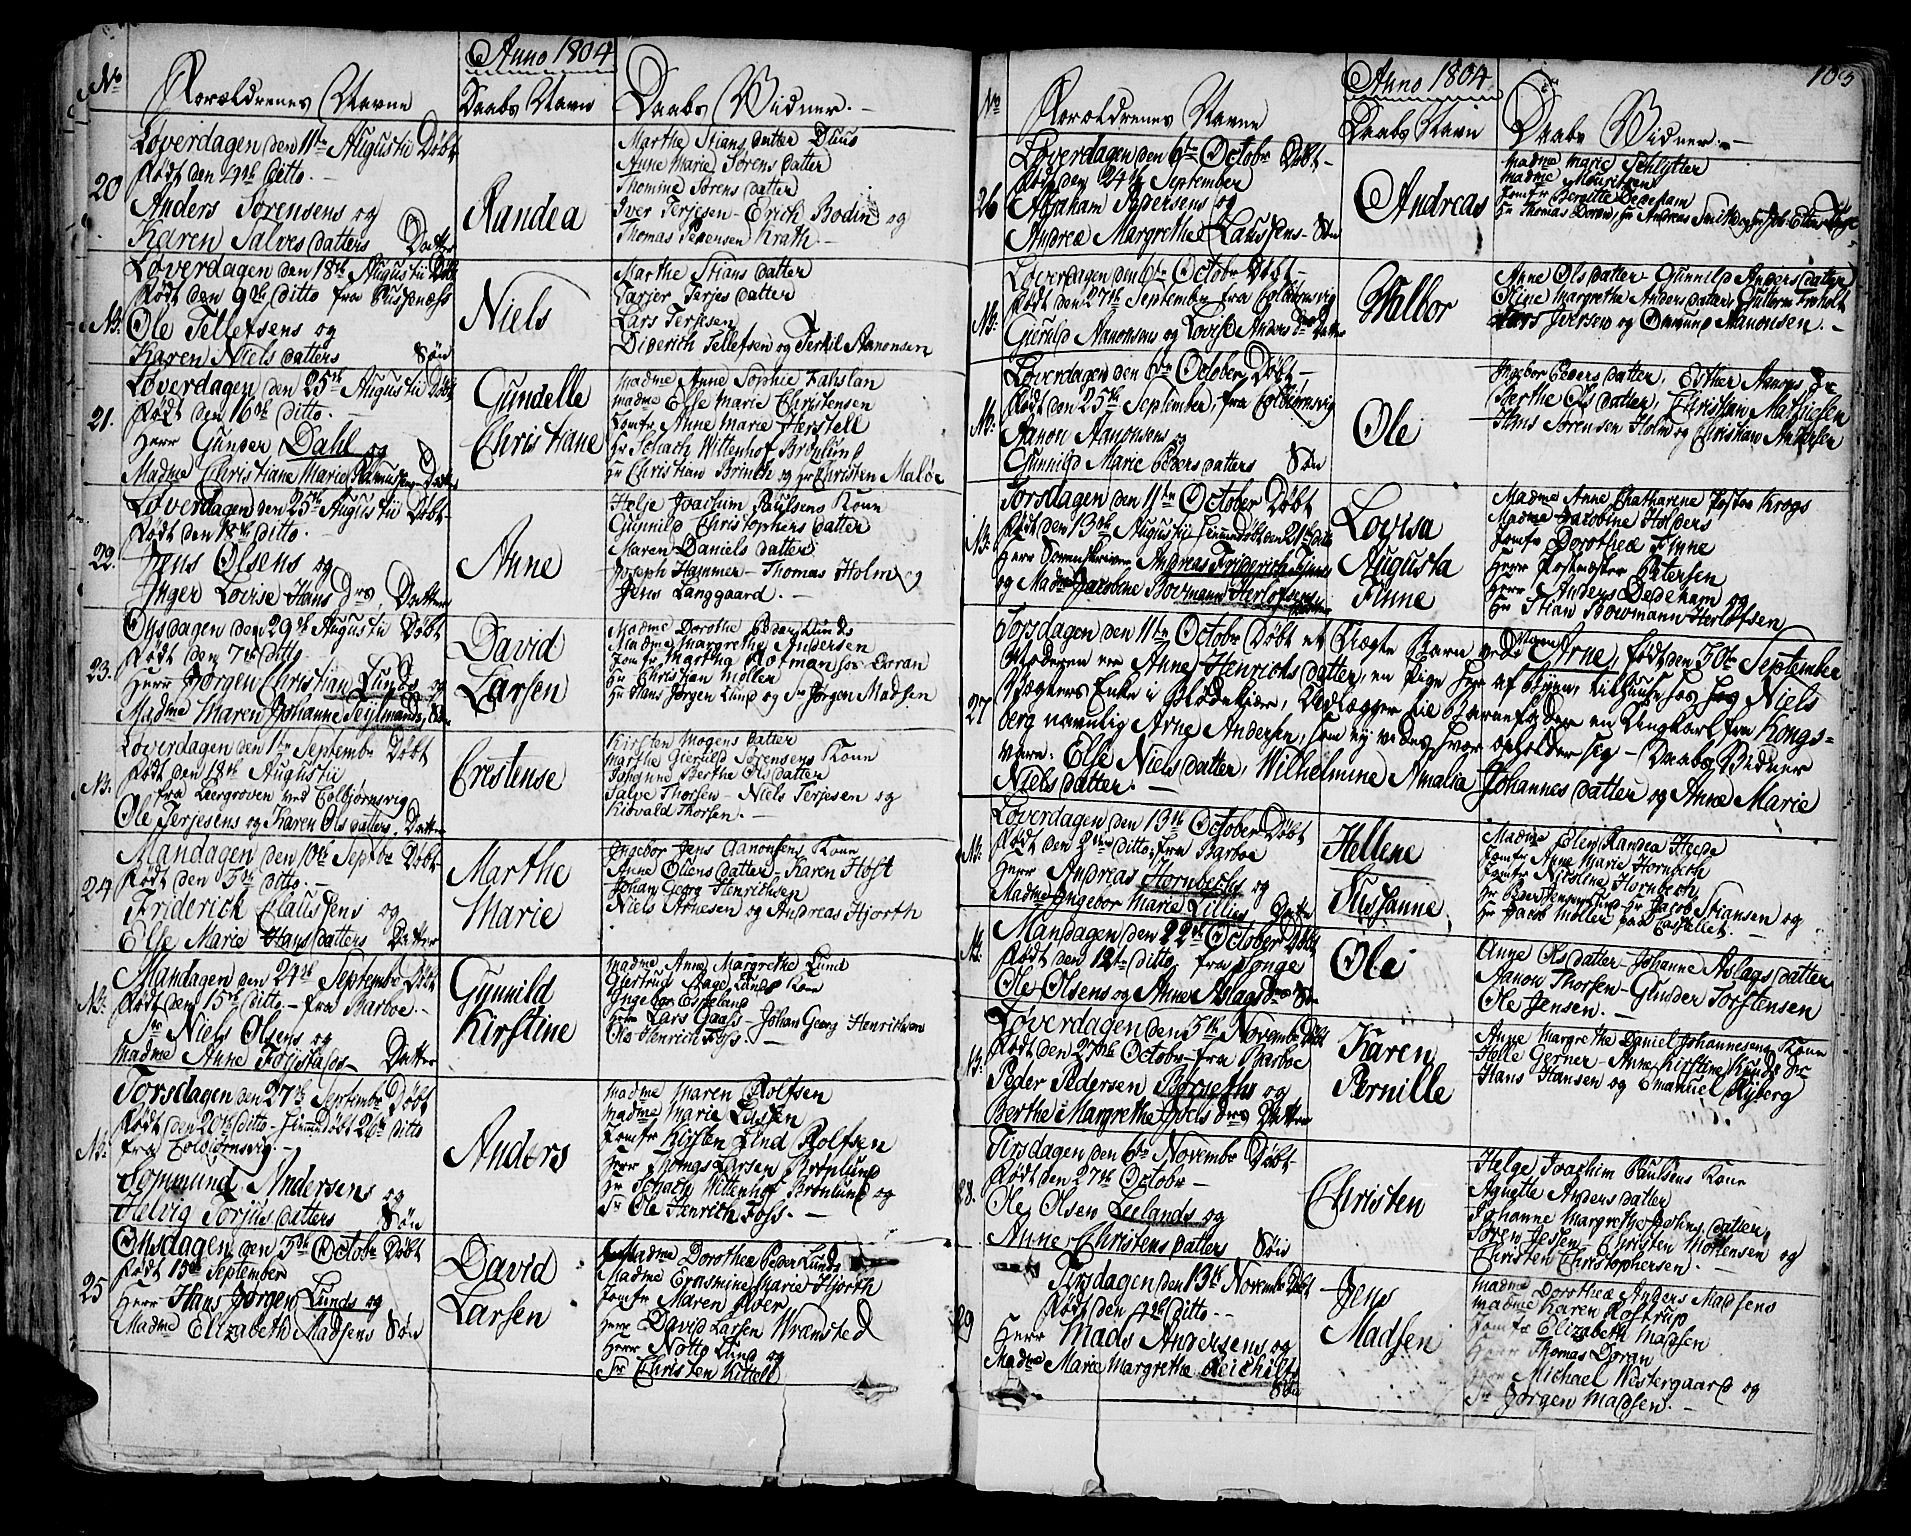 Anno 1804
No
Forældrenes Navne
Daabs Navn
Daabs Vidner.
Løverdagen den 11te Augustii Døbt
Født den 4de ditto.
20
Anders Sørensens og
Karen Salves datters Datter
Randea
Marthe Stians datter Duus
Anne Marie Sørens datter
Thomine Sørens datter
Iver Terjesen - Erich Bodin og
Thomas Pedersen Krath.
Løverdagen den 18de Augustii Døbt
Født den 9de ditto fra
NB.
Ole Tellefsens og
Karen Niels datters Søn
Niels
Marthe Stians datter
Tarjer Terjes datter
Lars Terjesen
Diderich Tellefsen og Terkil Aanonsen
Løverdagen den 25de Augustii Døbt
Født den 16de ditto.
21.
Herr Gunder Dahl og
Madme Christiane Marie Rasmussens Datter
Gundelle
Christiane
Madme Anne Sophie
Madme Else Marie Christensen
Jomfr Anne Marie Herstell
Hr Schach Wittenhof Brønlund
Hr Christian Brinch og Hr Christen Maløe
Løverdagen den 25de Augustii Døbt
Født den 18de ditto.
22.
Jens Olsens og
Inger Lovise Hans Drs. Datter
Anne
Helje Joachim Paulsens Kone
Gunnild Christophers datter
Maren Daniels datter
Joseph Hammer - Thomas Holm og
Jens Langgaard.
Onsdagen den 29de Augustii Døbt
Født den 7de ditto
23.
Herr Jørgen Christian Lunds og
Madme Maren Johanne Teijlmands, Søn
David
Larsen
Madme Dorothe Peder Lunds
Madme Margrethe Andersen
Jomfr Martha Rotman for Doran
Hr Christian Møller
Hr Hans Jørgen Lund og Sr Jørgen Madsen
Løverdagen den 1te Septembr Døbt
Født den 18de Augustii
NB.
fra Leergroven ved Colbjørnsvig
Ole Terjesens og Karen Ols datters. Datter
Crestense
Kirsten Mogens datter
Marthe Gieruld Sørensens Kone
Johanne Berthe Ols datter
Salve Thorsen - Niels Terjesen og
Thorsen.
Mandagen den 10de Septbr Døbt
Født den 3de ditto
24
Friderich Claussens og
Else Marie Hans datters Datter
Marthe
Marie
Ingebor Jens Aanonsens Kone
Anne Ollens datter - Karen Host
Johan Georg Henrichsen
Niels Arnesen og Andreas Hjorth
Mandagen den 24de Septembr Døbt
Født den 15de ditto - fra Barboe.
NB.
Sr Niels Olsens og
Madme Anne Datter
Gunnild
Kirstine
Madme Anne Margrethe Lund
Giertrud Lunds Kone
Ingebor Espeland
Herr Lars Gaas - Johan Georg Henrichsen
Ole Henrich Foss.
Torsdagen den 27de Septembr Døbt
Født den 20de ditto - hiemmedøbt 26de ditto
NB.
fra Colbjørnsvig.
Andersens og
Helvig Torjus datters Søn
Anders
Madme Maren Rolfsen
Madme Marie Lassen
Jomfr Kirsten Lund Rolfsen
Herr Thomas Larsen Brønlund
Hr Schach Wittenhof Brønlund og
Sr Ole Henrich Foss.
Onsdagen den 3de Octobr Døbt
Født 13de September
25
Herr Hans Jørgen Lunds og
Madme Elizabeth Madsens Søn
David
Larsen
Madme Dorothea Peder Lunds
Madme Erasmine Marie Hjorth
Jomfr Maren Aver
Herr David Larsen Wramsted
Herr Notto Lund og
Sr Christen Kittell
103
Anno 1804
No
Forældrenes Navne
Daabs Navn
Daabs Vidner.
Løverdagen den 6te Octobr Døbt
Født den 24de September
26
Abraham Pedersens og
Andrea Margrethe Laussens - Søn
Andreas
Madme Marie Schlytter
Madme Mouritzen
Jomfr Birgitte Dedekam
Hr Thomas Doran, Hr Andreas Smith og
Løverdagen den 6te Octobr Døbt
Født den 27de September fra Colbiørnsvig
NB.
Gieruld Aanonsens og Lovise Anders Drs Datter
Wilbor
Anne Ols datter - Gunnild Anders datter
Oline Margrethe Anders datter
Lars Iversen og Omund Aanonsen.
Løverdagen den 6te October Døbt
Født den 25de September, fra Colbiørnsvig
NB.
Aanon Aanonsens og
Gunnild Marie Peders datters Søn
Ole
Ingebor Peders datter, Esther Aanons Dr
Berthe Ols datter, Christian Mathiesen
Hans Sørensen Holm og Christian Andersen
Torsdagen den 11te October Døbt
Født den 13de Augustii hiemmedøbt den 21de ditto
NB.
Herr Sorenskriver Andreas Friderich Finnes
og Madme Jacobine Bowmann Herlofsens Datter
Lovisa
Augusta
Finne
Madme Anne Catharine Foster Krogs
Madme Jacobine Holders
Jomfr Dorothea Finne
Herr Postmæster Petersen
Herr Anders Dedekam og
Hr Stian Bowmann Herlofsen
Torsdagen den 11te Octobr Døbt et Uægte Barn ved Navn Arne, født den 30te September
Moderen er Anne Henrichs datter, en Pige her af Byen, tilhuus hos Niels
27
Vægters Enke i Blødekiær, Udlægger til Barnefader en Ungkarl fra Kongs-
berg navnlig Arne Andersen, som ej vides hvor opholder sig - Daabs Vidner
vare: Else Niels datter, Wilhelmine Amalia Johannes datter og Anne Marie
Niels datter.
Løverdagen den 13de October Døbt
Født den 2den ditto, fra Barboe
NB.
Herr Andreas Hornbechs og
Madme Ingebor Marie Lillies Datter
Hellene
Susanne
Madme Elen Randea Heede
Jomfr Anne Marie Hornbech
Jomfr Nicoline Hornbech
Hr Peder Jensen Lund Hr Jacob Stiansen og
Hr Jacob Møller paa Castellet.
Mandagen den 22de October Døbt
Født den 12te ditto fra Songe
NB.
Ole Olsens og Anne Aslags Drs Søn
Ole
Anne Ols datter - Johanne Aslags datter
Aanon Thorsen - Gunder Torstensen
Ole Jensen.
Løverdagen den 3de Novembr Døbt
Født den 27de Octobr - fra Barboe
NB.
Peder Pedersen Børseths og
Berthe Margrethe Joels Drs Datter
Karen
Pernille
Anne Margrethe Daniel Johannesens Kone
Helle Gerner - Anne Kirstine Knuds Dr
Hans Hansen og Emanuel Ryberg
Tirsdagen den 6te Novembr Døbt
Født den 27de Octobr
28.
Ole Olsen Leelands og
Anne Christens datters Søn
Christen
Helge Joachim Paulsens Kone
Agnette Anders datter
Johanne Margrethe datter,
Søren Jessen, Christen Mortensen og
Christen Christophersen.
Tirsdagen den 13de Novembr Døbt
Født den 4de ditto
29
Herr Mads Andersens og
Madme Marie Margrethe Reichelts
Søn
Jens
Madsen
Madme Dorothea Anders Madsens
Madme Karen Rostrup
Jomfr Elizabeth Madsen
Herr Thomas Doran
Herr Michael Westergaard og
Sr Jørgen Madsen.